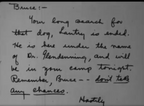 Bruce:-
Your long search for
that dog, Lantry is ended.
He is here under the name
of Dr. Glendenning, and will
be in your camp tonight.
Remember, Bruce -- don't take
any chances.
Hastily